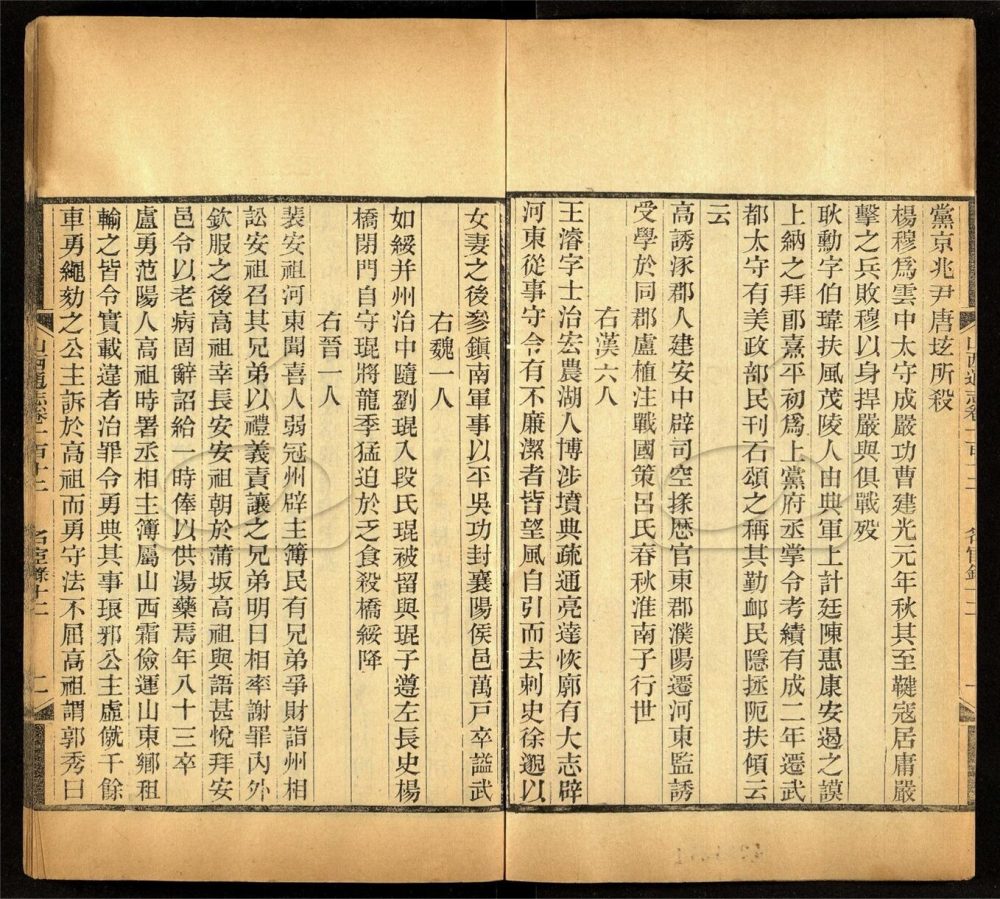 黨京兆尹唐玹所殺
楊穆爲雲中太守成嚴功曹建光元年秋其至鞬寇居庸嚴
擊之兵敗穆以身捍嚴與俱戰歿
耿勳字伯瑋扶風茂陵人由典軍上計廷陳惠康安遏之謨
上納之拜郎熹平初爲上黨府丞掌令考績有成二年遷武
都太守有美政部民刊石頌之稱其勤卹民隱拯阨扶傾云
云
高誘涿郡人建安中辟司空掾歴官東郡濮陽遷河東監誘
受學於同郡盧植注戰國策呂氏春秋淮南子行世
右漢六人
王濬字士治宏農湖人博涉墳典疏通亮達恢廓有大志辟
河東從事守令有不廉潔者皆望風自引而去刺史徐邈以
女妻之後參鎮南軍事以平吳功封襄陽侯邑萬戸卒諡武
右魏一人
如綏并州治中隨劉琨入段氏琨被留與琨子遵左長史楊
橋閉門自守琨將龍季猛迫於乏食殺橋綏降
右晉一人
裴安祖河東聞喜人弱冠州辟主簿民有兄弟爭財詣州相
訟安祖召其兄弟以禮義責讓之兄弟明日相率謝罪內外
欽服之後高祖幸長安安祖朝於蒲坂高祖與語甚悅拜安
邑令以老病固辭詔給一時俸以供湯藥焉年八十三卒
盧勇范陽人高祖時署丞相主簿屬山西霜儉運山東鄉租
輸之皆令實載違者治罪令勇典其事琅邪公主虛僦千餘
車勇繩劾之公主訴於高祖而勇守法不屈高祖謂郭秀曰
山西通志卷一百十二 名宦錄十二 二